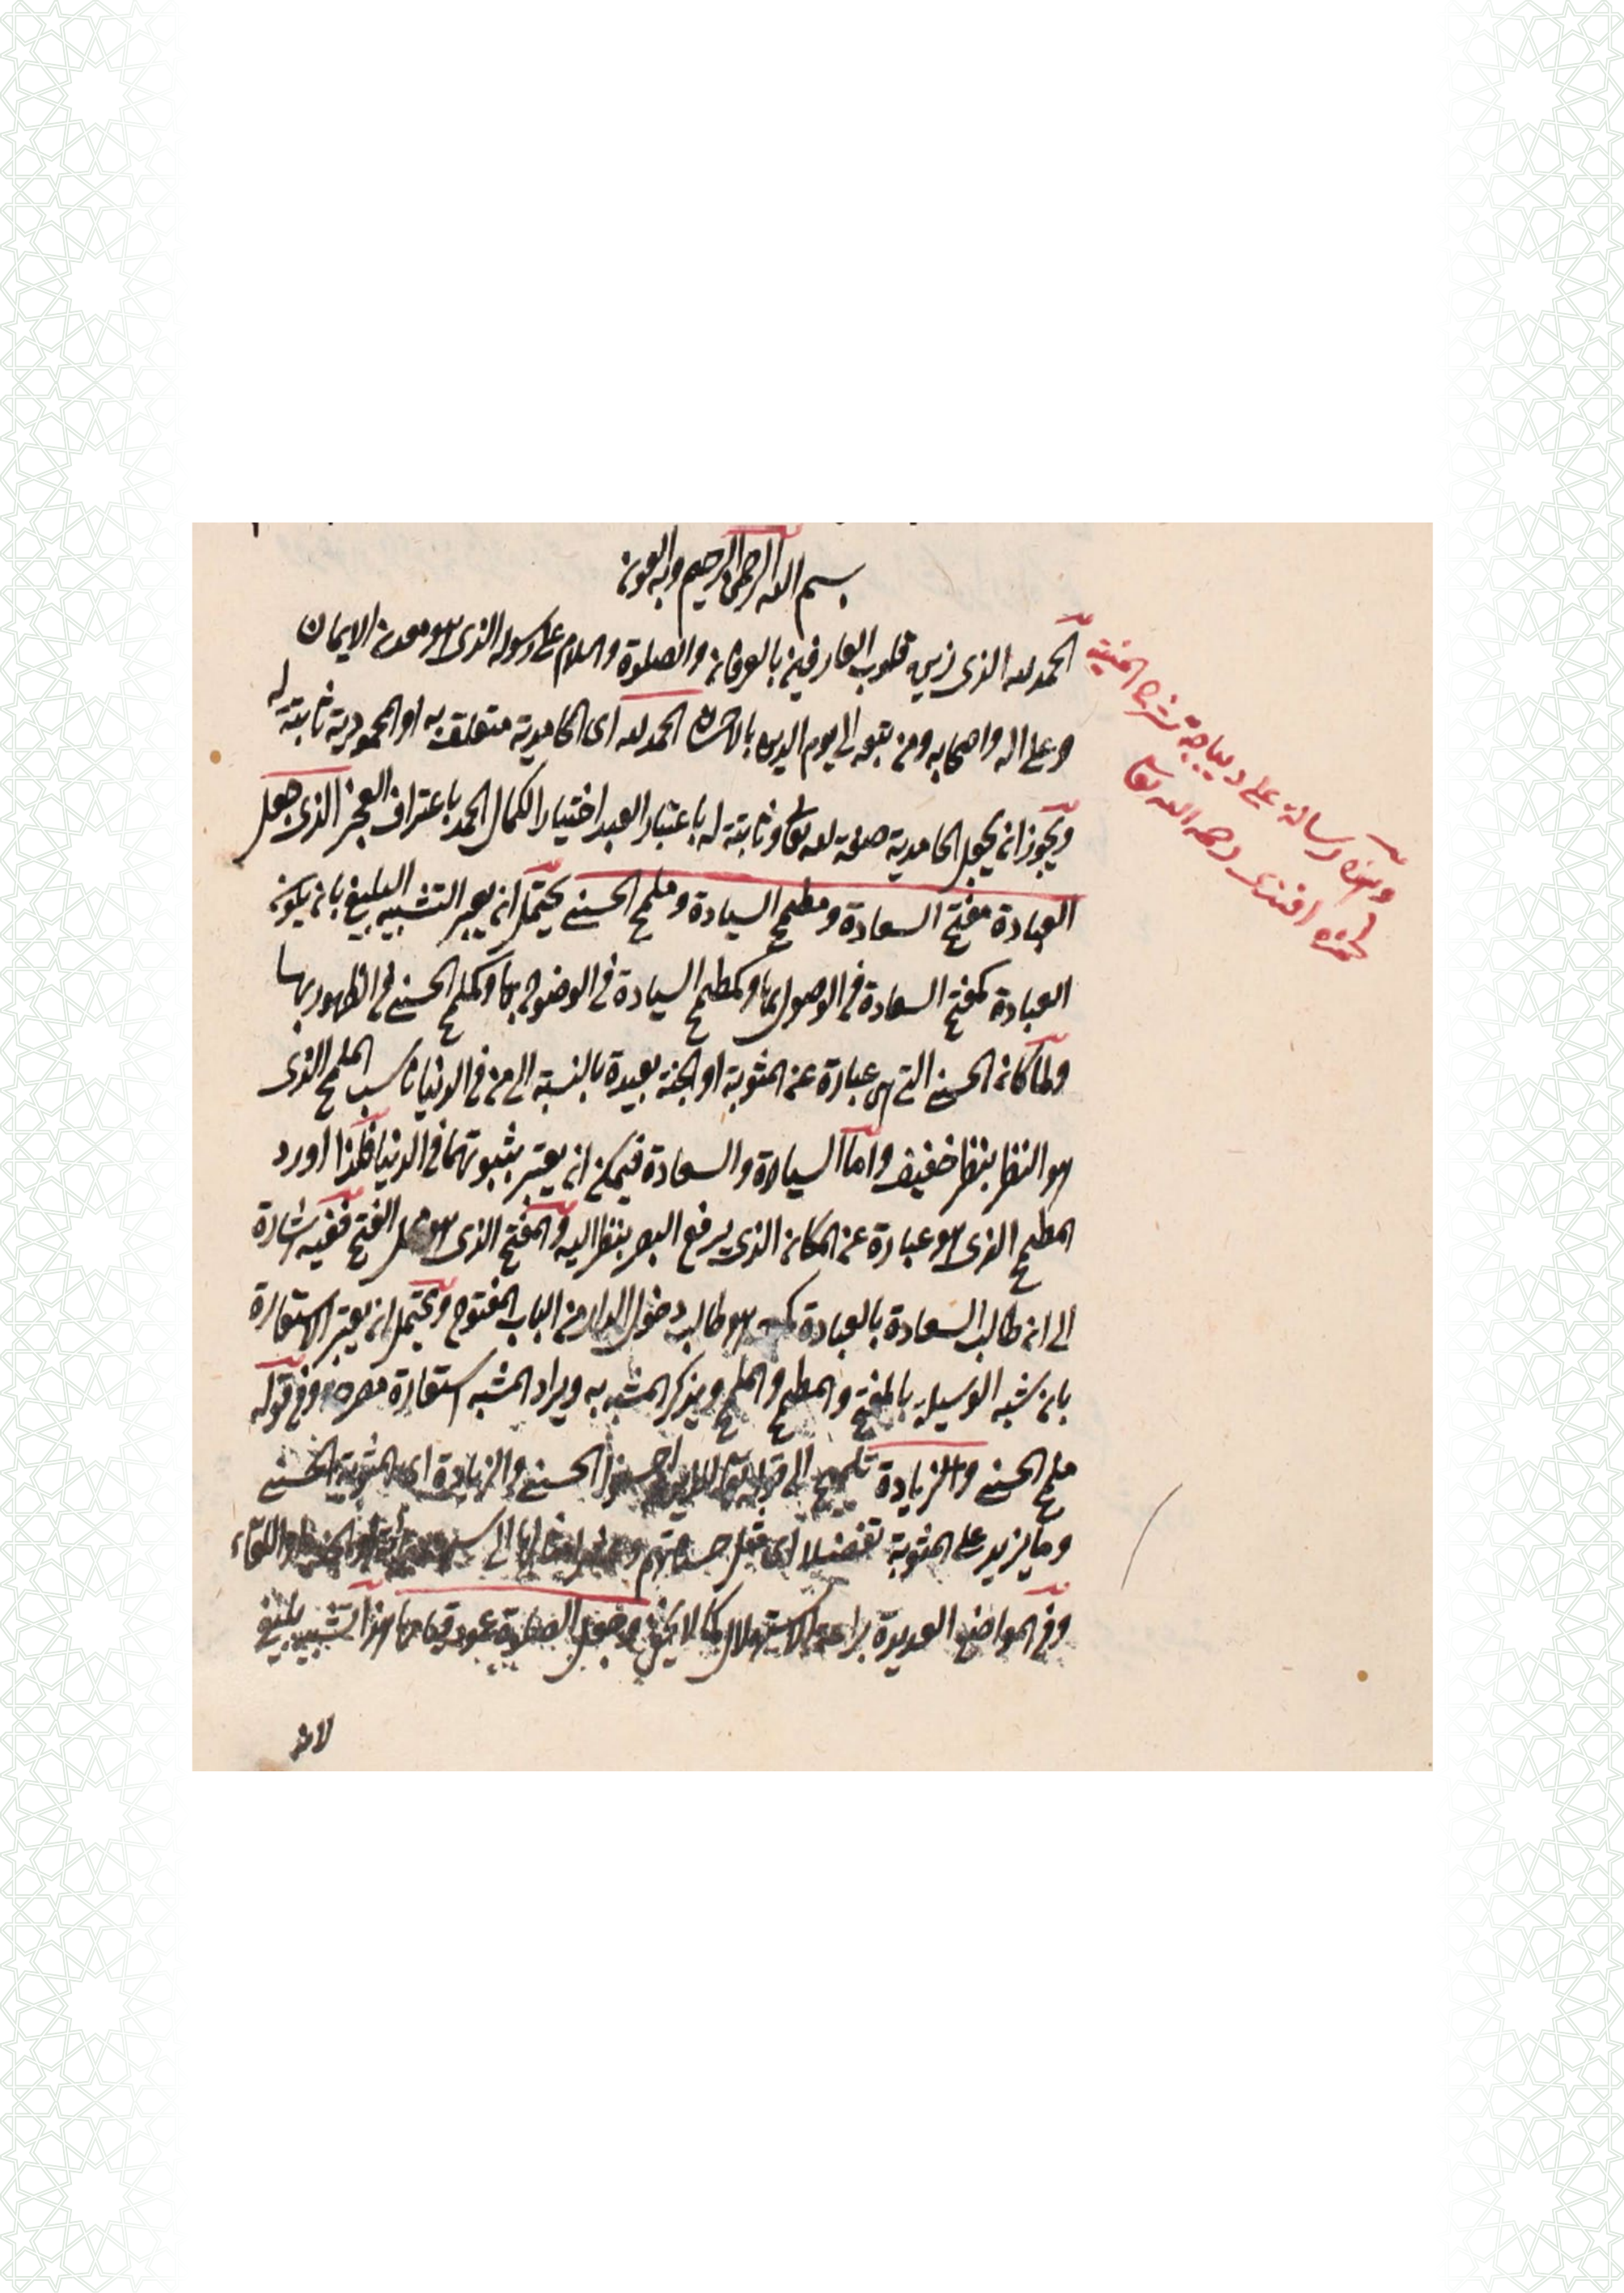 بسم الله الرحمن الرحيم وبه العون
الحمد لله الذى زين قلوب العارفين بالعرفان والصلوة والسلام على رسوله الذى هو معدن الايمان
وعلى اله واصحابه ومن تبعه الى يوم الدين بالاحسان الحمد لله اى الحامدية متعلقة به او المحمودية ثابتة له
ويجوز ان يجعل الحامدية صفة لله تعا وثابتة له باعتبار العبد اختيارا لكمال الحمد باعتراف العجز الذى جعل
العبادة مفتح السعادة ومطمح السيادة وملمح الحسنى يحتمل ان يعتبر التشبيه البليغ بان يكون
العبادة كمفتح السعادة فى الوصول بها وكمطمح السيادة فى الوضوح بها وكملمح الحسنى فى الظهور بها
ولما كان الحسنى التى هى عبارة عن المثوبة او الجنة بعيدة بالنسبة الى من فى الدنيا ناسب الملمح الذى
هو النظر بنظر خفيف واما السيادة والسعادة فيمكن ان يعتبر بثبوتهما فى الدنيا فلذا اورد
المطمح الذى هو عبارة عن المكان الذى يرفع البصر بنظر اليه والمفتح الذى هو محل الفتح ففيه اشارة
الى ان طالب السعادة بالعبادة كمن هو طالب دخول الدار من الباب المفتوح ويحتمل ان يعتبر الاستعارة
بان شبه الوسيلة بالمفتح والمطمح والملمح ويذكر المشبه به ويراد المشبه استعارة مصرحة وفى قوله
ملمح الحسنى والزيادة تلميح الى قوله تعا للذين احسنوا الحسنى والزيادة اى المثوبة الحسنى
وما يزيد على المثوبة تفضلا اى مثل حسناتهم الى واللقاء
وفى المواضع العديدة براعة الاستهلال كما لا يخفى وجعل الصلوة عمود قيامها هذا تشبيه بليغ
لان
وهذه رسالة على ديباجة شرح المنية
لحمزه افندى رحمه الله تعا